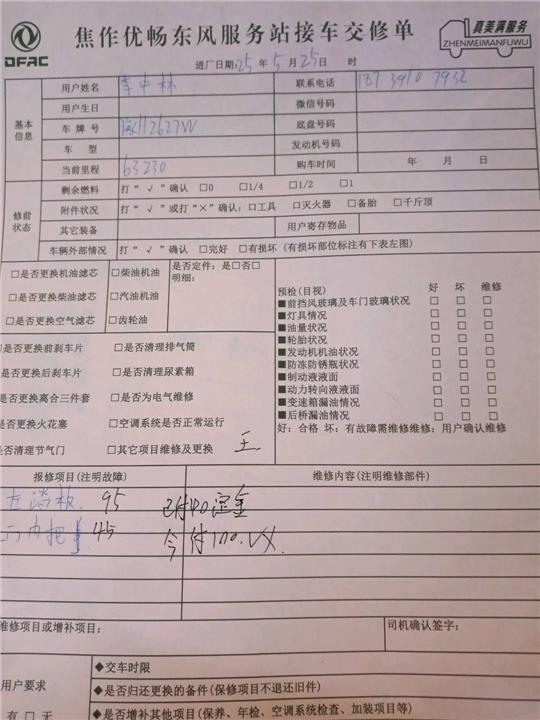 DFAC
焦作优畅东风服务站接车交修单
真美满服务
ZHENMEIMANFUWU
进厂日期:25年5月25日 时
基本信息
用户姓名 李中林 联系电话
用户生日 微信号码
车牌号 底盘号码
车型 发动机号码
当前里程 63230 购车时间 年 月 日
修前状态
剩余燃料 打“√”确认 □0 □1/4 □1/2 □1
附件状况 打“√”或打“×”确认:□工具 □灭火器 □备胎 □千斤顶
其它装备 用户寄存物品
车辆外部情况 打“√”确认 □完好 □有损坏(有损坏部位标注有下表左图)
□是否更换机油滤芯 □柴油机油 是否定件:是□否□
明细:
□是否更换柴油滤芯 □汽油机油
□是否更换空气滤芯 □齿轮油
是否更换前刹车片 □是否清理排气筒
是否更换后刹车片 □是否清理尿素箱
是否更换离合三件套 □是否为电气维修
是否更换火花塞 □空调系统是否正常运行
是否清理节气门 □其它项目维修及更换 王
预检(目视) 好 坏 维修
■前挡风玻璃及车门玻璃状况 □ □ □
■灯具情况 □ □ □
■油量状况 □ □ □
■轮胎状况 □ □ □
■发动机机油状况 □ □ □
■防冻防锈瓶状况 □ □ □
■制动液液面 □ □ □
■动力转向液液面 □ □ □
■变速箱漏油情况 □ □ □
■后桥漏油情况 □ □ □
好:合格 坏:有故障需维修维修:用户确认维修
报修项目(注明故障) 维修内容(注明维修部件)
左踏板 95 已付40定金
内把手 45 今付100.
维修项目或增补项目: 司机确认签字:
用户要求
有 □ 无
◆交车时限
◆是否归还更换的备件(保修项目不退还旧件)
◆是否增补其他项目(保养、年检、空调系统检查、加装项目等)